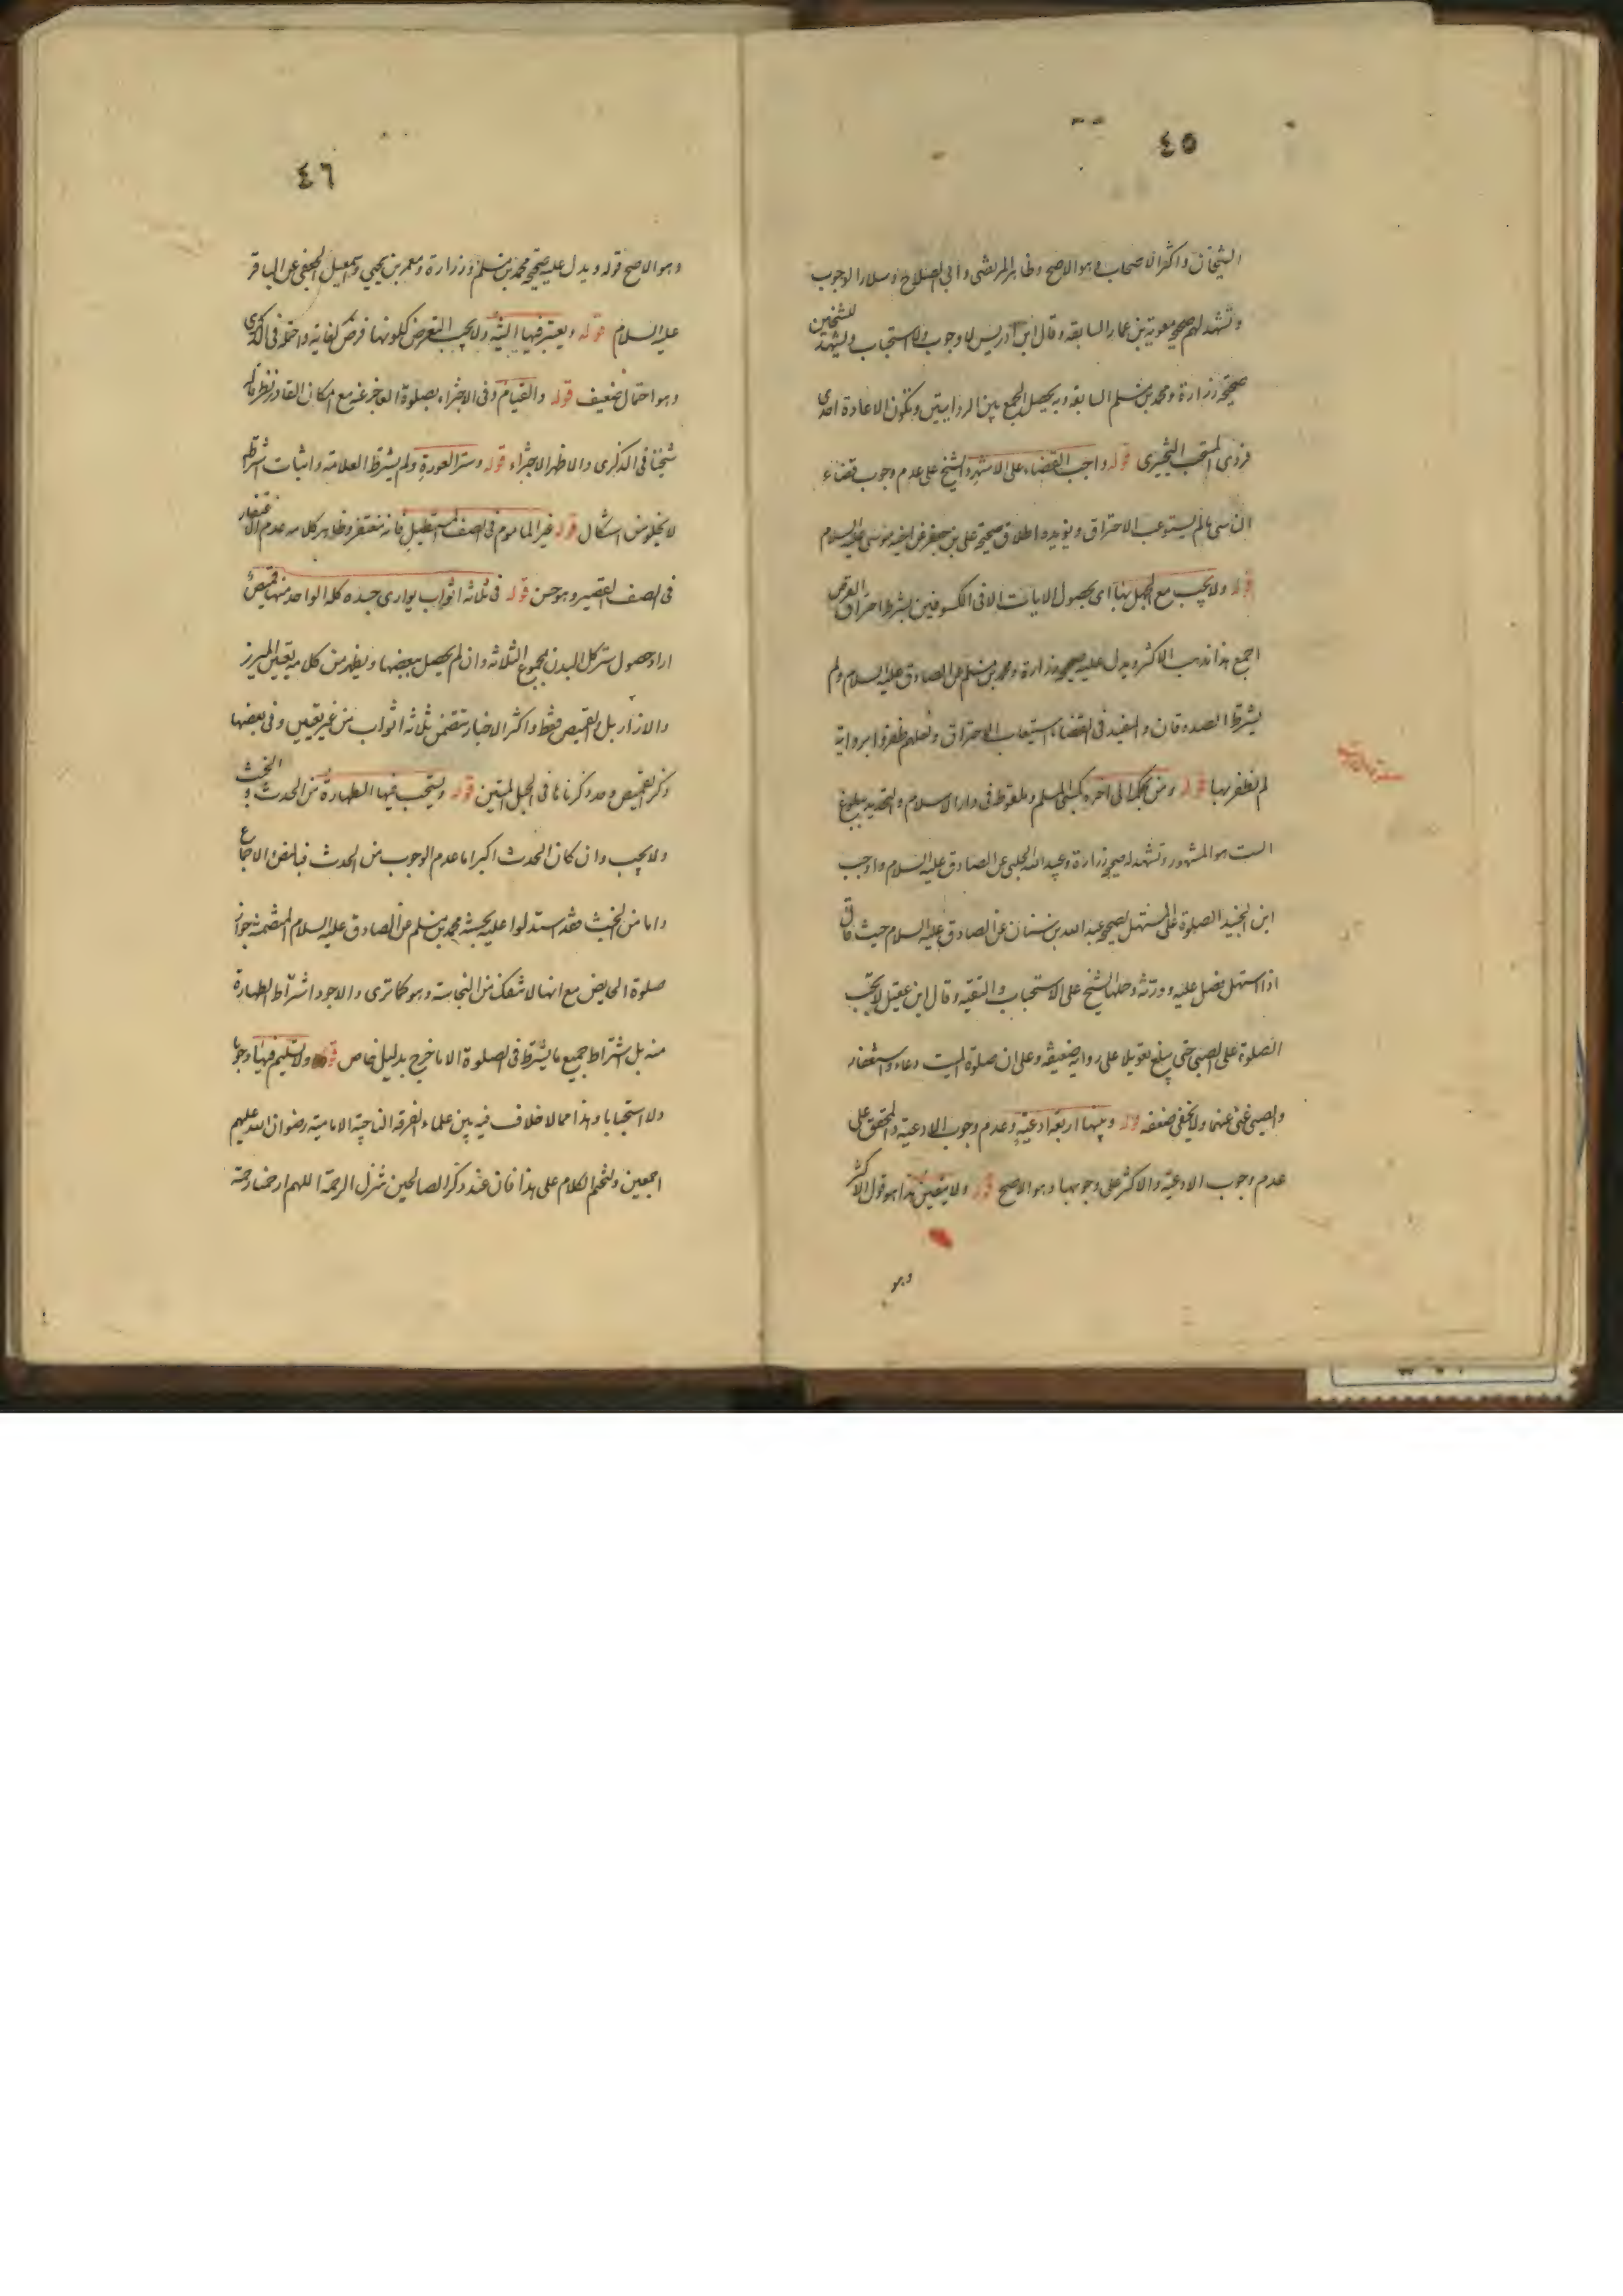 ٤٥
الشيخان واكثر الاصحاب وهو الاصح وظاهر المرتضى وابى الصلاح وسلار الوجوب
وتشهد لهم صحيحة معوية بن عمار السابقة وقال ابن ادريس لا وجوب ولا استحباب ويشهد للشيخين
صحيحة زرارة ومحمد بن مسلم السابقة وبه يحصل الجمع بين الروايتين وتكون الاعادة احدى
فردى المستحب التخييرى قوله واجب القضاء على الاشهر والشيخ على عدم وجوب قضاء
الناسى ما لم يستوعب الاحتراق ويؤيده اطلاق صحيحة على بن جعفر عن اخيه موسى عليه السلام
قوله ولا يجب مع الجهل بها اى بحصول الايات الا فى الكسوفين بشرط احتراق القرص
اجمع هذا مذهب الاكثر ويدل عليه صحيحة زرارة ومحمد بن مسلم عن الصادق عليه السلام ولم
يشترط الصدوقان والمفيد فى القضاء استيعاب الاحتراق ولعلهم ظفروا برواية
لم نظفر بها قوله ومن بحكمه الى اخره كسبى المسلم وملقوط فى دار الاسلام والتحديد ببلوغ
الست هو المشهور وتشهد له صحيحة زرارة وعبيد الله الحلبى عن الصادق عليه السلام واوجب
ابن الجنيد الصلوة على المستهل لصحيحة عبد الله بن سنان عن الصادق عليه السلام حيث قال
اذا استهل فصل عليه وورثه وحملها الشيخ على الاستحباب والتقية وقال ابن عقيل لا تجب
الصلوة على الصبى حتى يبلغ تعويلا على رواية ضعيفة وعلى ان صلوة الميت دعاء واستغفار
والصبى غنى عنهما ولا يخفى ضعفه قوله وبينها اربعة ادعية وعدم وجوب الادعية والمحقق على
عدم وجوب الادعية والاكثر على وجوبها وهو الاصح قوله ولا يتعين هذا هو قول الاكثر
وهو
٤٦
وهو الاصح قوله ويدل عليه صحيحة محمد بن مسلم وزرارة ومعمر بن يحيى واسمعيل الجعفى عن الباقر
عليه السلام قوله ويعتبر فيها النية ولا يجب التعرض لكونها فرض كفاية واحتمله فى الذكرى
وهو احتمال ضعيف قوله والقيام وفى الاجتزاء بصلوة العاجز عنه مع امكان القادر نظر قاله
شيخنا فى الذكرى والاظهر الاجتزاء قوله وستر العورة ولم يشترط العلامة واثبات اشتراطه
لا يخلو من اشكال قوله غير الماموم فى الصف المستطيل فانه مغتفر وظاهر كلامه عدم الاغتفار
فى الصف القصير وهو حسن قوله فى ثلاثة اثواب يوارى جسده كله الواحد منها قميص
اراد حصول ستر كل البدن بمجموع الثلاثة وان لم يحصل ببعضها ويظهر من كلامه تعيين الميزر
والازار بل والقميص فقط واكثر الاخبار يتضمن ثلاثة اثواب من غير تعيين وفى بعضها
ذكر القميص وحد ذكرناها فى الحبل المتين قوله ويستحب فيها الطهارة من الحدث والخبث
ولا يجب وان كان الحدث اكبر اما عدم الوجوب من الحدث فبالنص والاجماع
واما من الخبث فقد استدلوا عليه بحسنة محمد بن مسلم عن الصادق عليه السلام المتضمنة جواز
صلوة الحايض مع انها لا تنفك من النجاسة وهو كما ترى والاجود اشتراط الطهارة
منه بل اشتراط جميع ما يشترط فى الصلوة الا ما خرج بدليل خاص قوله ولا تسليم فيها وجوبا
ولا استحبابا وهذا مما لا خلاف فيه بين علماء الفرقة الناجية الامامية رضوان الله عليهم
اجمعين ولنختم الكلام على هذا فان عند ذكر الصالحين تنزل الرحمة اللهم ارحمنا رحمة